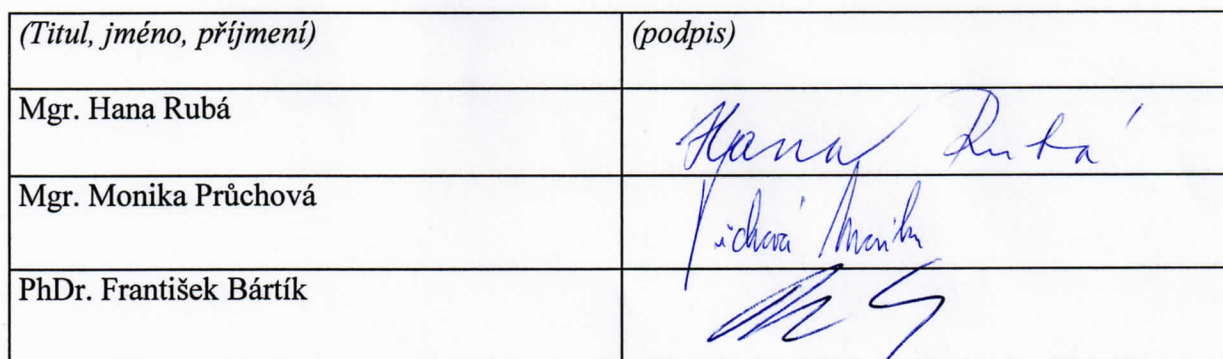 (Titul, jméno, příjmení) (podpis)
Mgr. Hana Rubá Hana Rubá
Mgr. Monika Průchová
PhDr. František Bártík